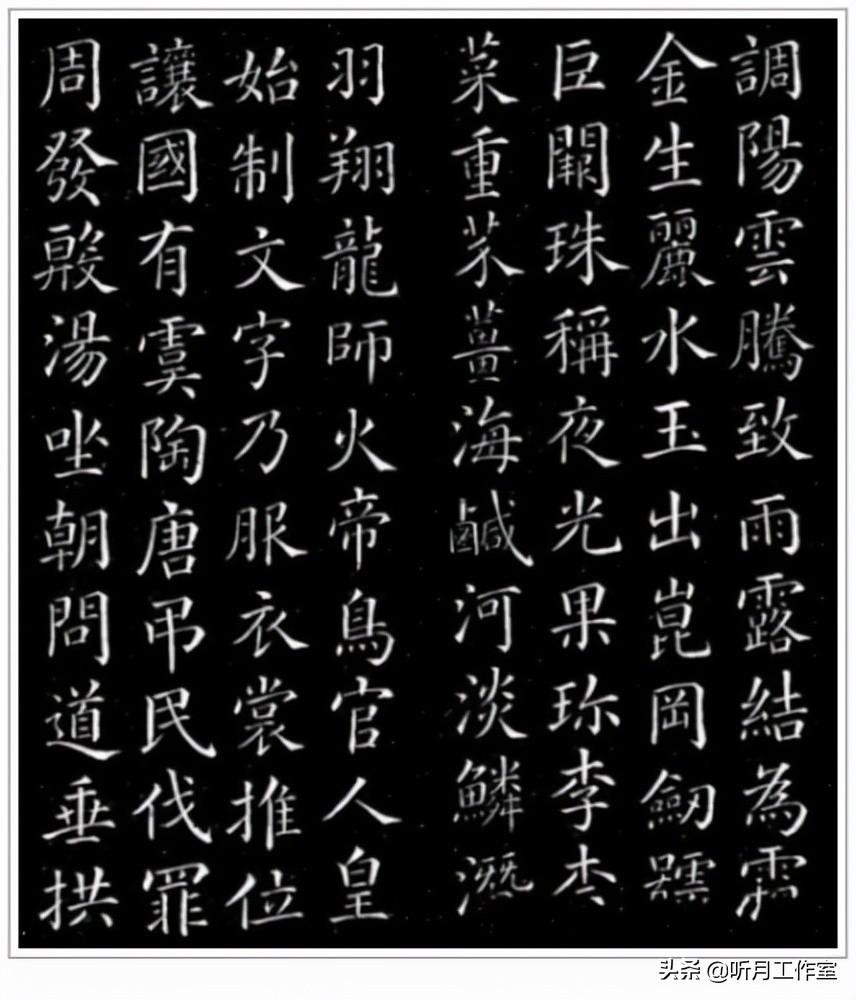 調陽雲騰致雨露結為霜
金生麗水玉出崑岡劒號
巨闕珠稱夜光果珎李柰
菜重芥薑海鹹河淡鱗潛
羽翔龍師火帝鳥官人皇
始制文字乃服衣裳推位
讓國有虞陶唐吊民伐罪
周發殷湯坐朝問道垂拱
头条 @听月工作室